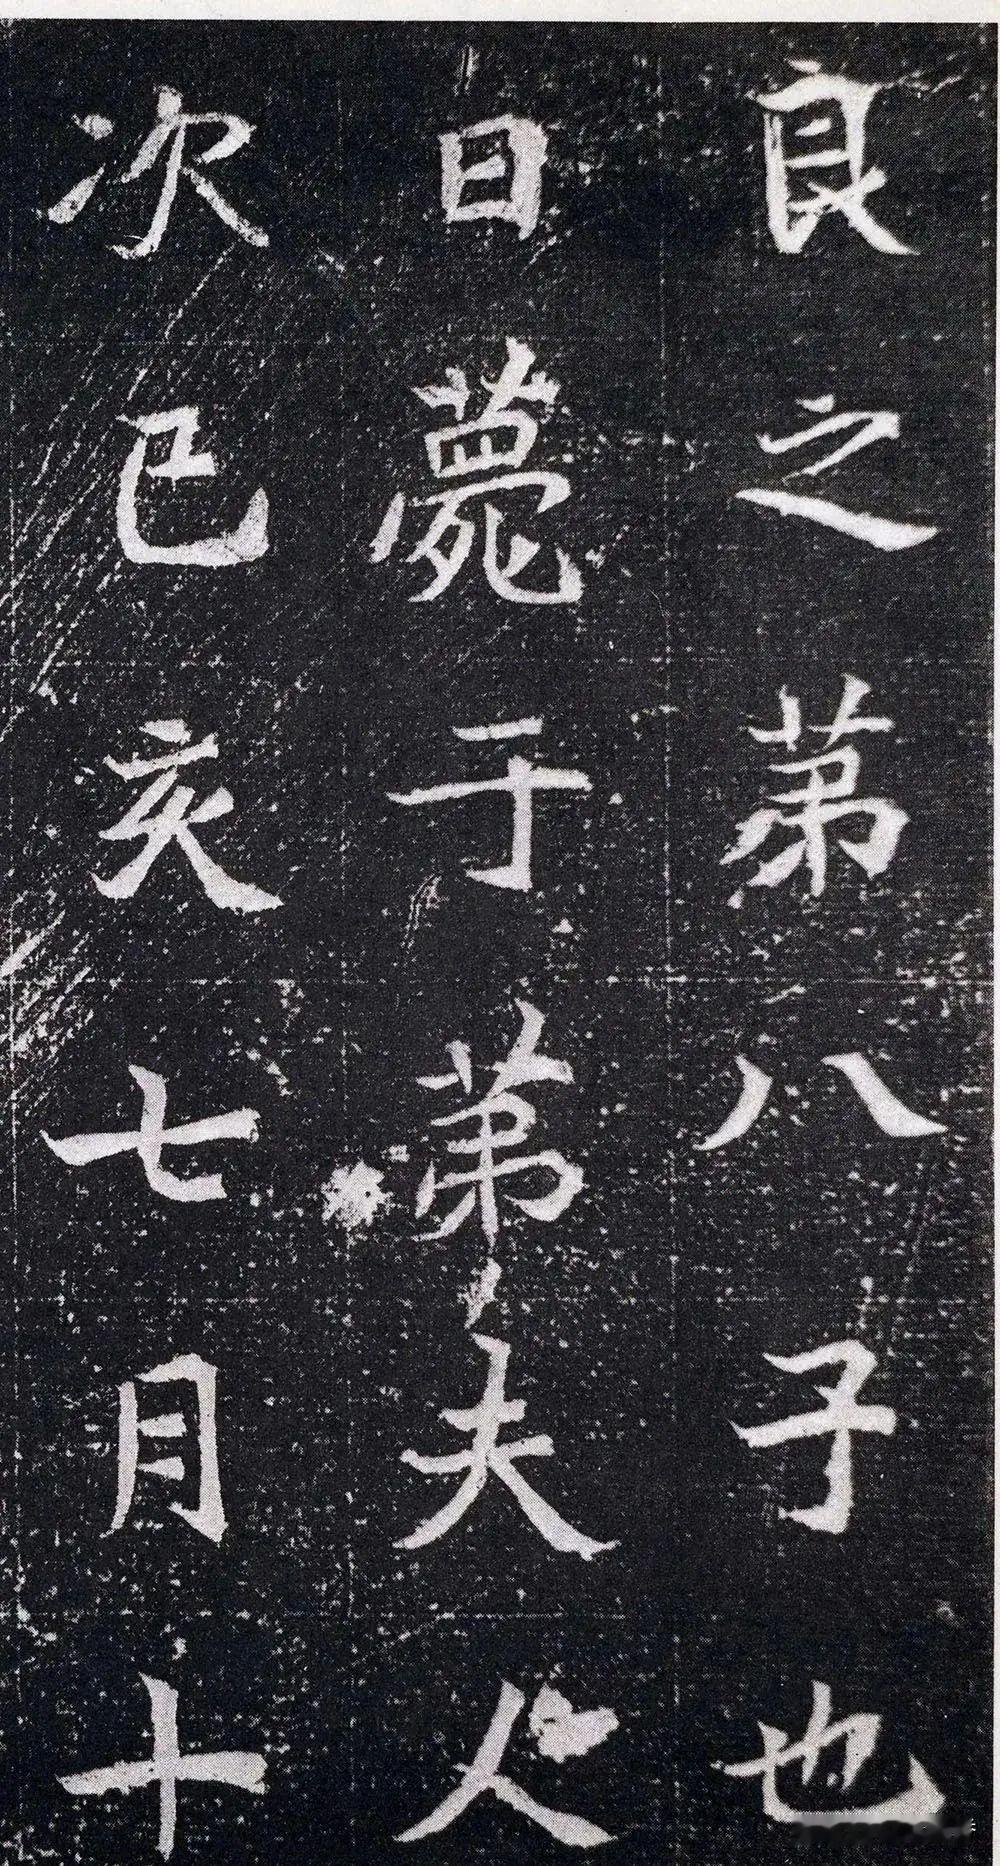 良之苐八子也
日薨于苐夫人
次己亥七月十